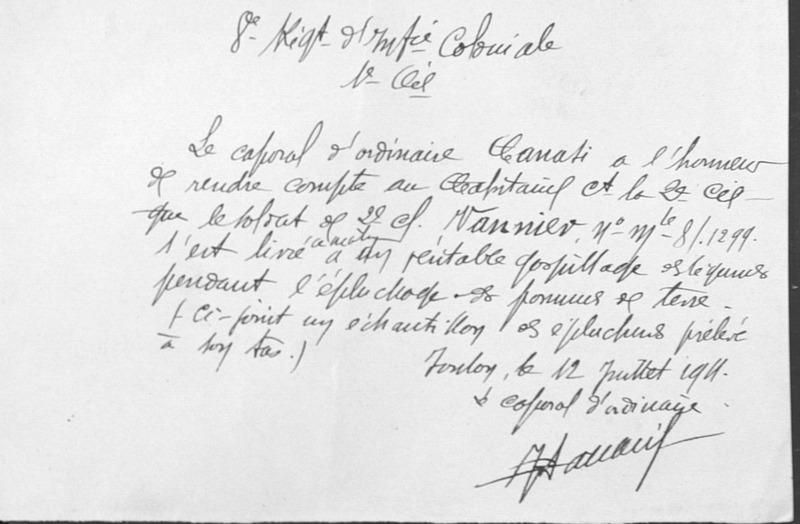 8e Régt d'Infie Coloniale
1e Cie
Le caporal d'ordinaire Canasi a l'honneur
de rendre compte au Capitaine Ct la 2e Cie
que le soldat de 2e cl. Vannier, no mle 8/.1299.
s'est livré ce matin à un véritable gaspillage des légumes
pendant l'épluchage des pommes de terre.
(Ci-joint un échantillon des épluchures prélevé
à son tas.)
Toulon, le 12 Juillet 1911.
Le caporal d'ordinaire